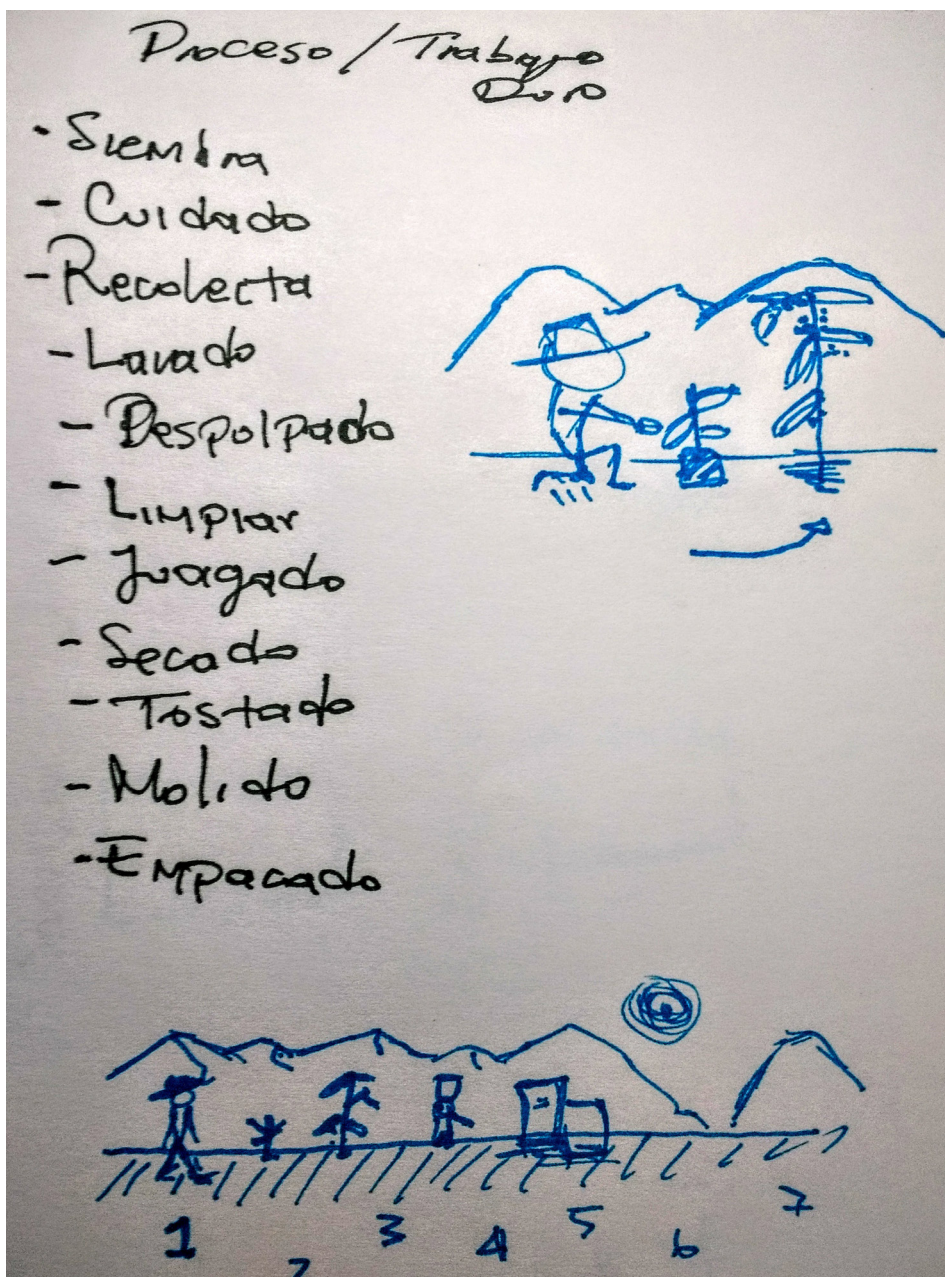 Proceso / Trabajo
Duro
- Siembra
- Cuidado
- Recolecta
- Lavado
- Despolpado
- Limpiar
- Juagado
- Secado
- Tostado
- Molido
- Empacado
1 2 3 4 5 6 7